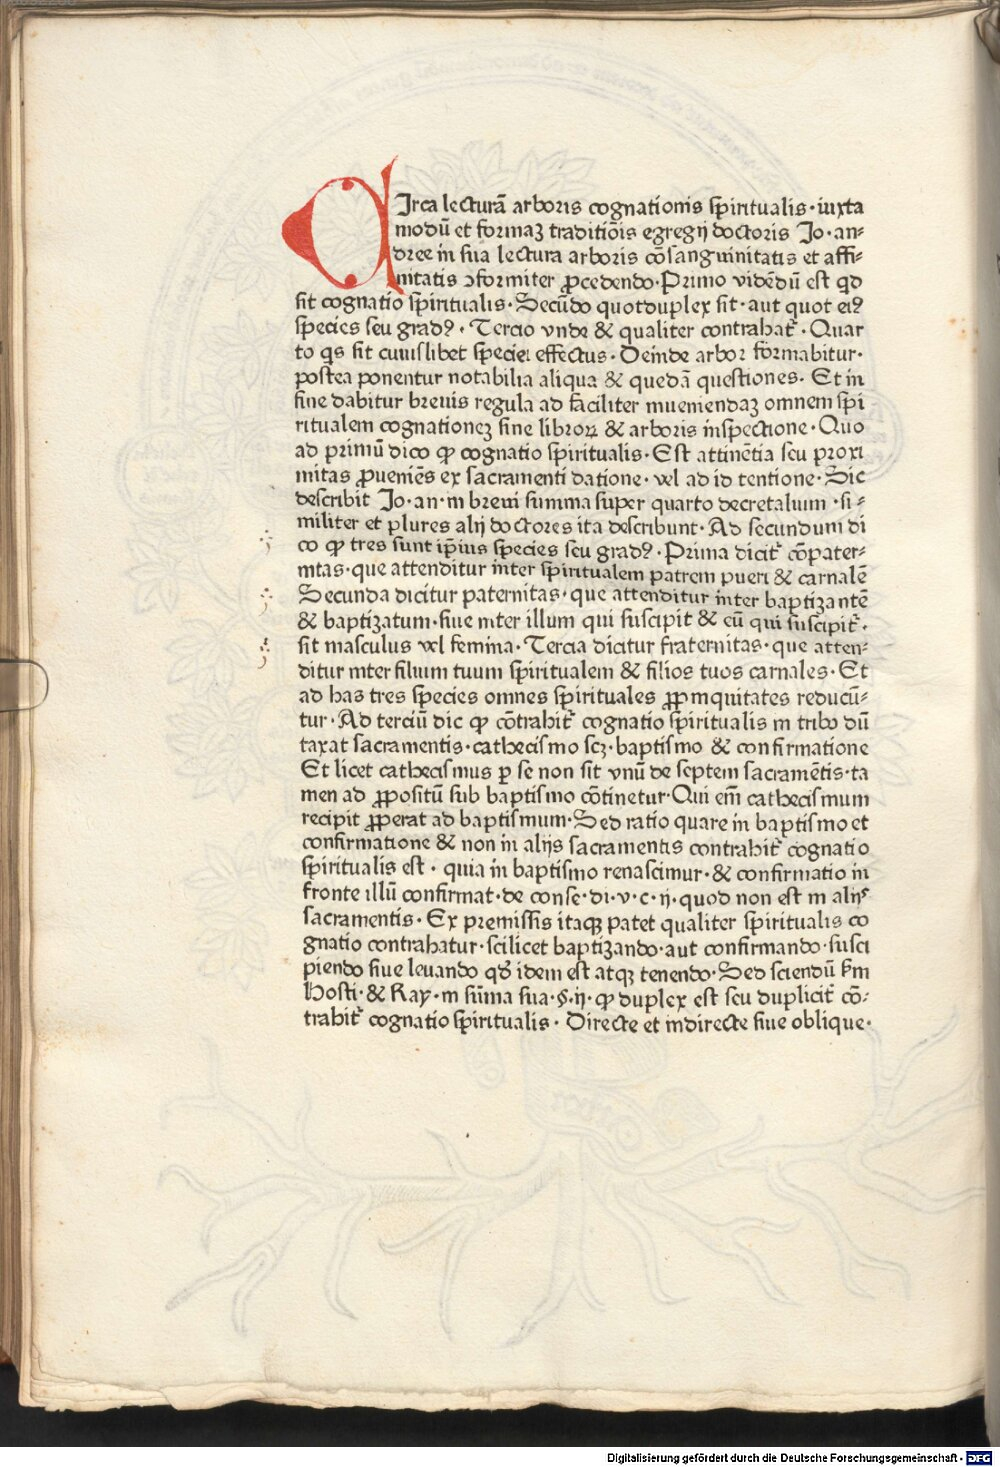 CIrca lecturā arboris cognationis spiritualis · iuxta
modū et formaꝫ traditiōis egregij doctoris Jo · an⸗
dree in sua lectura arboris cōsanguinitatis et affi⸗
nitatis ↄformiter ꝓcedendo · Primo vidēdū est qd
sit cognatio spiritualis · Secūdo quotduplex sit · aut quot eiꝰ
species seu gradꝰ · Tercio vnde & qualiter contrahat᷑ · Quar
to qs sit cuiuslibet speciei effectus · Deinde arbor formabitur ·
postea ponentur notabilia aliqua & quedā questiones · Et in
fine dabitur breuis regula ad faciliter inueniendaꝫ omnem spi
ritualem cognationeꝫ sine libroꝝ & arboris inspectione · Quo
ad primū dico ꝙ cognatio spiritualis · Est attinētia seu proxi
mitas ꝓueniēs ex sacramenti datione · vel ad id tentione · Sic
describit Jo · an · in breui summa super quarto decretalium · si⸗
militer et plures alij doctores ita describunt · Ad secundum di
co ꝙ tres sunt ip̄ius species seu gradꝰ · Prima dicit᷑ cōpater⸗
nitas · que attenditur inter spiritualem patrem pueri & carnalē
Secunda dicitur paternitas · que attenditur inter baptizantē
& baptizatum · siue inter illum qui suscipit & eū qui suscipit᷑ ·
sit masculus vel femina · Tercia dicitur fraternitas · que atten⸗
ditur inter filium tuum spiritualem & filios tuos carnales · Et
ad has tres species omnes spirituales ꝓpinquitates reducū⸗
tur · Ad terciū dic ꝙ cōtrahit᷑ cognatio spiritualis in tribȝ dū
taxat sacramentis · cathecismo scꝫ · baptismo & confirmatione
Et licet cathecismus ꝑ se non sit vnū de septem sacramētis · ta
men ad ꝓpositū sub baptismo cōtinetur · Qui eni̅ cathecismum
recipit ꝓperat ad baptismum · Sed ratio quare in baptismo et
confirmatione & non in alijs sacramentis contrahit᷑ cognatio
spiritualis est · quia in baptismo renascimur · & confirmatio in
fronte illū confirmat · de conse · di · v · c · ij · quod non est in alijs
sacramentis · Ex premissis itaqꝫ patet qualiter spiritualis co
gnatio contrahatur · scilicet baptizando · aut confirmando · susci
piendo siue leuando qđ idem est atqꝫ tenendo · Sed sciendū ẜm
Hosti · & Ray · in sūma sua · §· ij · ꝙ duplex est seu duplicit᷑ cō⸗
trahit᷑ cognatio spiritualis · Directe et indirecte siue oblique ·
Digitalisierung gefördert durch die Deutsche Forschungsgemeinschaft - DFG